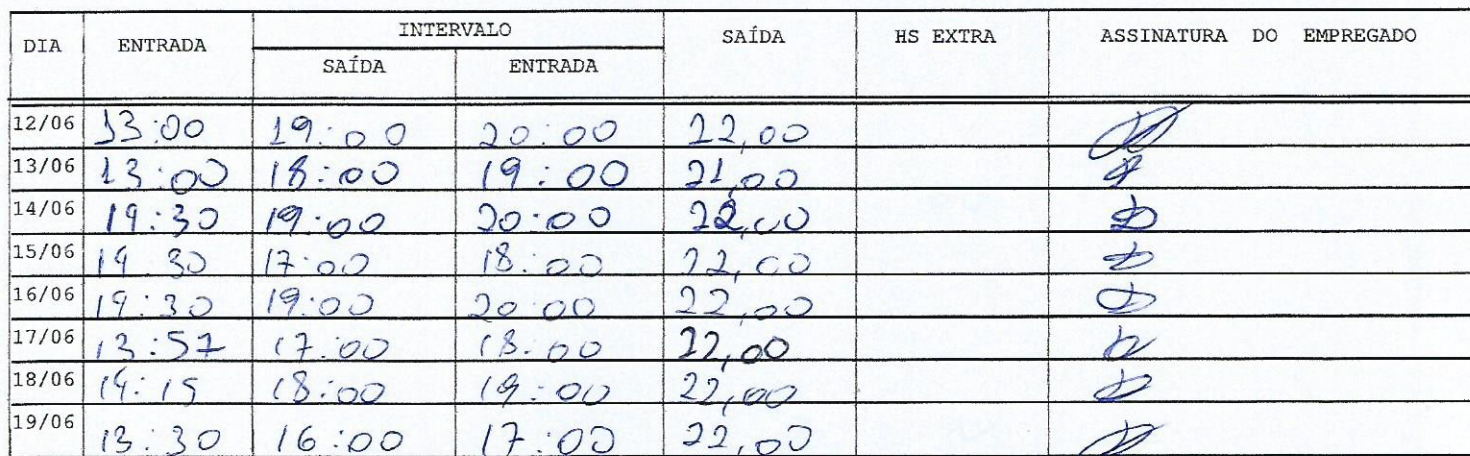 DIA ENTRADA INTERVALO SAÍDA HS EXTRA ASSINATURA DO EMPREGADO
SAÍDA ENTRADA
12/06 13:00 19:00 20:00 22,00
13/06 13:00 18:00 19:00 21,00
14/06 14:30 19:00 20:00 22,00
15/06 14:30 17:00 18:00 22,00
16/06 14:30 19:00 20:00 22,00
17/06 13:57 17:00 18:00 22,00
18/06 14:15 18:00 19:00 22,00
19/06 13:30 16:00 17:00 22,00